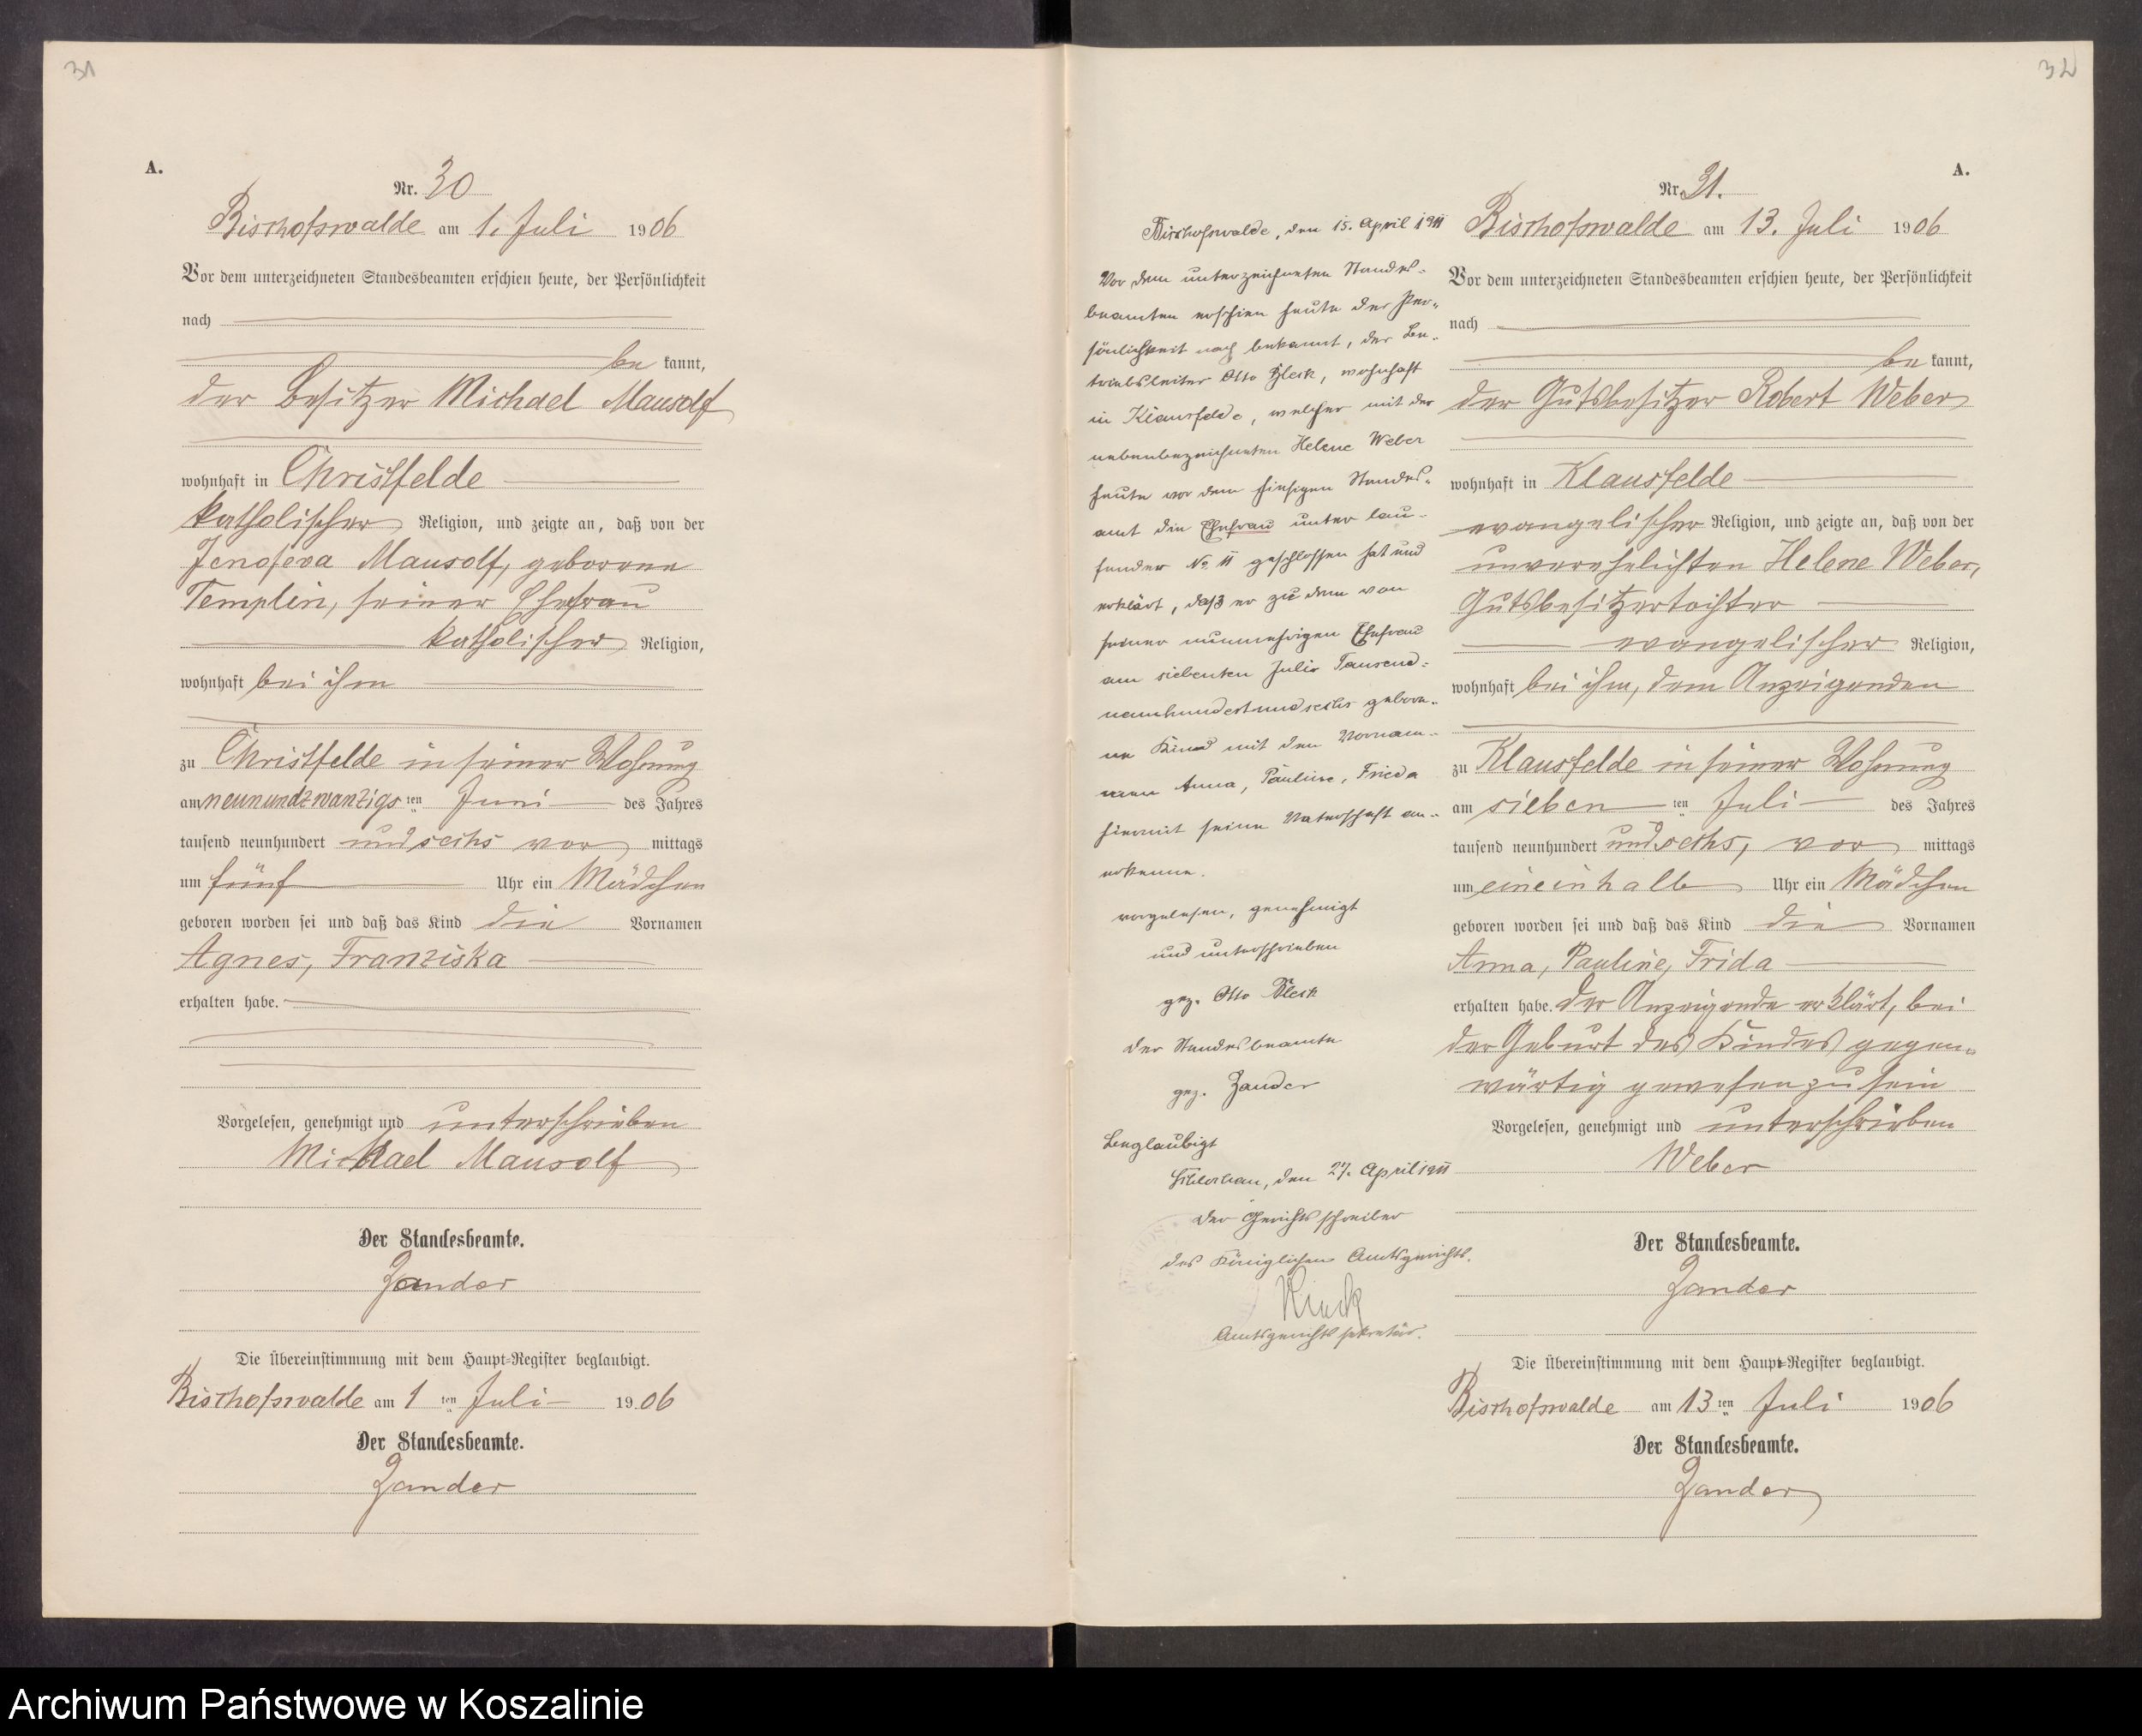 31
A.
Nr. 30
Bischofswalde am 1. Juli 1906
Vor dem unterzeichneten Standesbeamten erschien heute, der Persönlichkeit
nach
be kannt,
der Besitzer Michael Mausolf
wohnhaft in Christfelde
katholischer Religion, und zeigte an, daß von der
Jenofeva Mausolf, geborene
Templin, seiner Ehefrau
katholischer Religion,
wohnhaft bei ihm
zu Christfelde in seiner Wohnung
am neunundzwanzigs ten Juni des Jahres
tausend neunhundert und sechs vor mittags
um fünf Uhr ein Mädchen
geboren worden sei und daß das Kind die Vornamen
Agnes, Franziska
erhalten habe.
Vorgelesen, genehmigt und unterschrieben
Michael Mausolf
Der Standesbeamte.
Zander
Die Übereinstimmung mit dem Haupt-Register beglaubigt.
Bischofswalde am 1 ten Juli 1906
Der Standesbeamte.
Zander
32
A.
Bischofswalde, den 15. April 1911
Vor dem unterzeichneten Standes-
beamten erschien heute der Per-
sönlichkeit nach bekannt, der Be-
triebsleiter Otto Bleck, wohnhaft
in Klausfelde, welcher mit der
nebenbezeichneten Helene Weber
heute vor dem hiesigen Standes-
amt die Ehefrau unter lau-
fender No 11 geschlossen hat und
erklärt, daß er zu dem von
seiner nunmehrigen Ehefrau
am siebenten Julis Tausend-
neunhundertundsechs gebore-
ne Kind mit den Vornam-
men Anna, Pauline, Frieda
hiermit seine Vaterschaft an-
erkenne.
vorgelesen, genehmigt
und unterschrieben
gez. Otto Bleck
Der Standesbeamte
gez. Zander
Beglaubigt
Schlochau, den 27. April 1911
Der Gerichtsschreiber
des Königlichen Amtsgerichts.
Amtsgerichtssekretär.
Nr. 31.
Bischofswalde am 13. Juli 1906
Vor dem unterzeichneten Standesbeamten erschien heute, der Persönlichkeit
nach
be kannt,
der Gutsbesitzer Robert Weber
wohnhaft in Klausfelde
evangelischer Religion, und zeigte an, daß von der
unverehelichten Helene Weber,
Gutsbesitzertochter
evangelischer Religion,
wohnhaft bei ihm, dem Anzeigenden
zu Klausfelde in seiner Wohnung
am sieben ten Juli des Jahres
tausend neunhundert und sechs, vor mittags
um eineinhalb Uhr ein Mädchen
geboren worden sei und daß das Kind die Vornamen
Anna, Pauline, Frida
erhalten habe. Der Anzeigende erklärt, bei
der Geburt des Kindes gegen-
wärtig gewesen zu sein
Vorgelesen, genehmigt und unterschrieben
Weber
Der Standesbeamte.
Zander
Die Übereinstimmung mit dem Haupt-Register beglaubigt.
Bischofswalde am 13 ten Juli 1906
Der Standesbeamte.
Zander
Archiwum Państwowe w Koszalinie